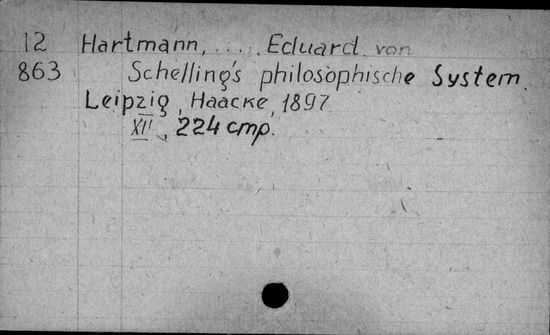 12 Hartmann, ..... Eduard von
863 Schelling's philosophische System.
Leipzig, Haacke, 1897
XII, 224 cmp.